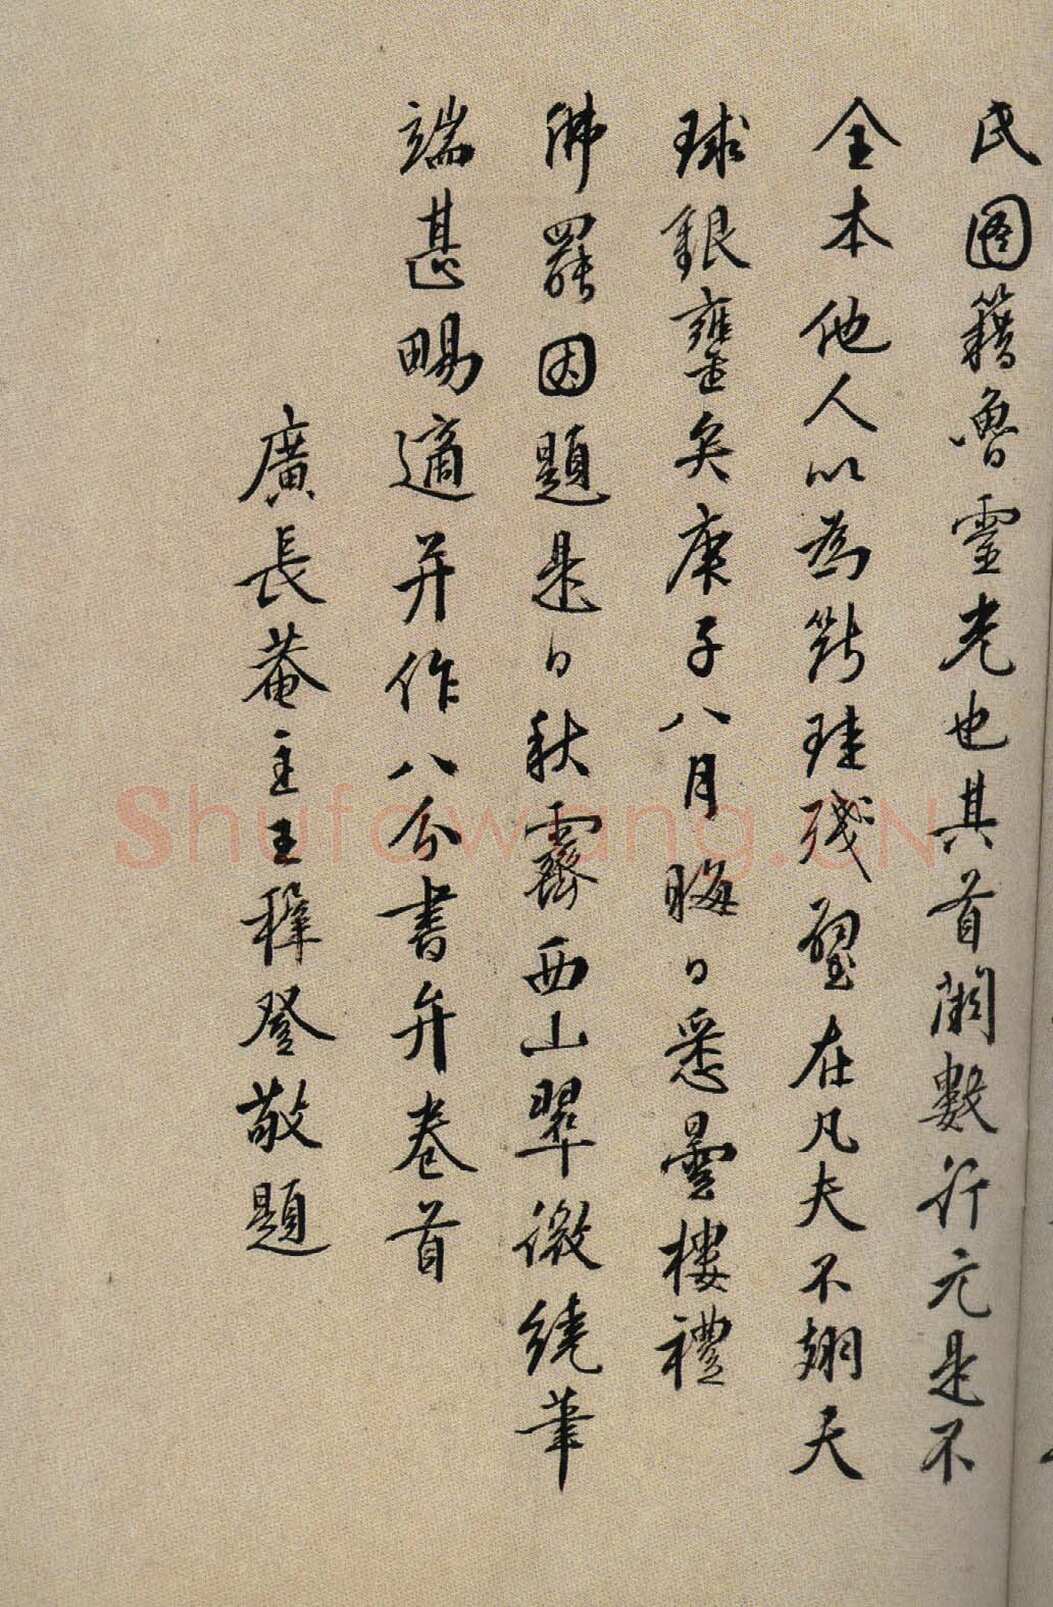 氏图籍魯靈光也其首闕數行元是不
全本他人以為斷珪殘璧在凡夫不翅天
球銀甕矣庚子八月晦日悉曇樓禮
佛罷因題是日秋霽西山翠微繞筆
端甚暢適并作八分書弁卷首
廣長菴主王穉登敬題
Shufawang.CN